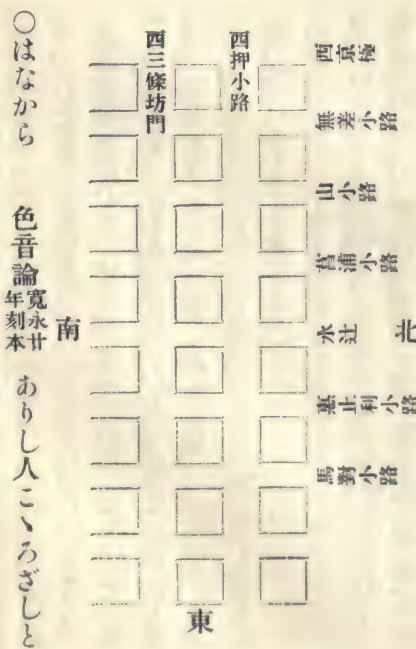 北
西京極
無差小路
山小路
菖浦小路
木辻
惠止利小路
馬對小路
西押小路
西三條坊門
東
南
○はなから 色音論 寛永廿年刻本 ありし人こゝろざしと